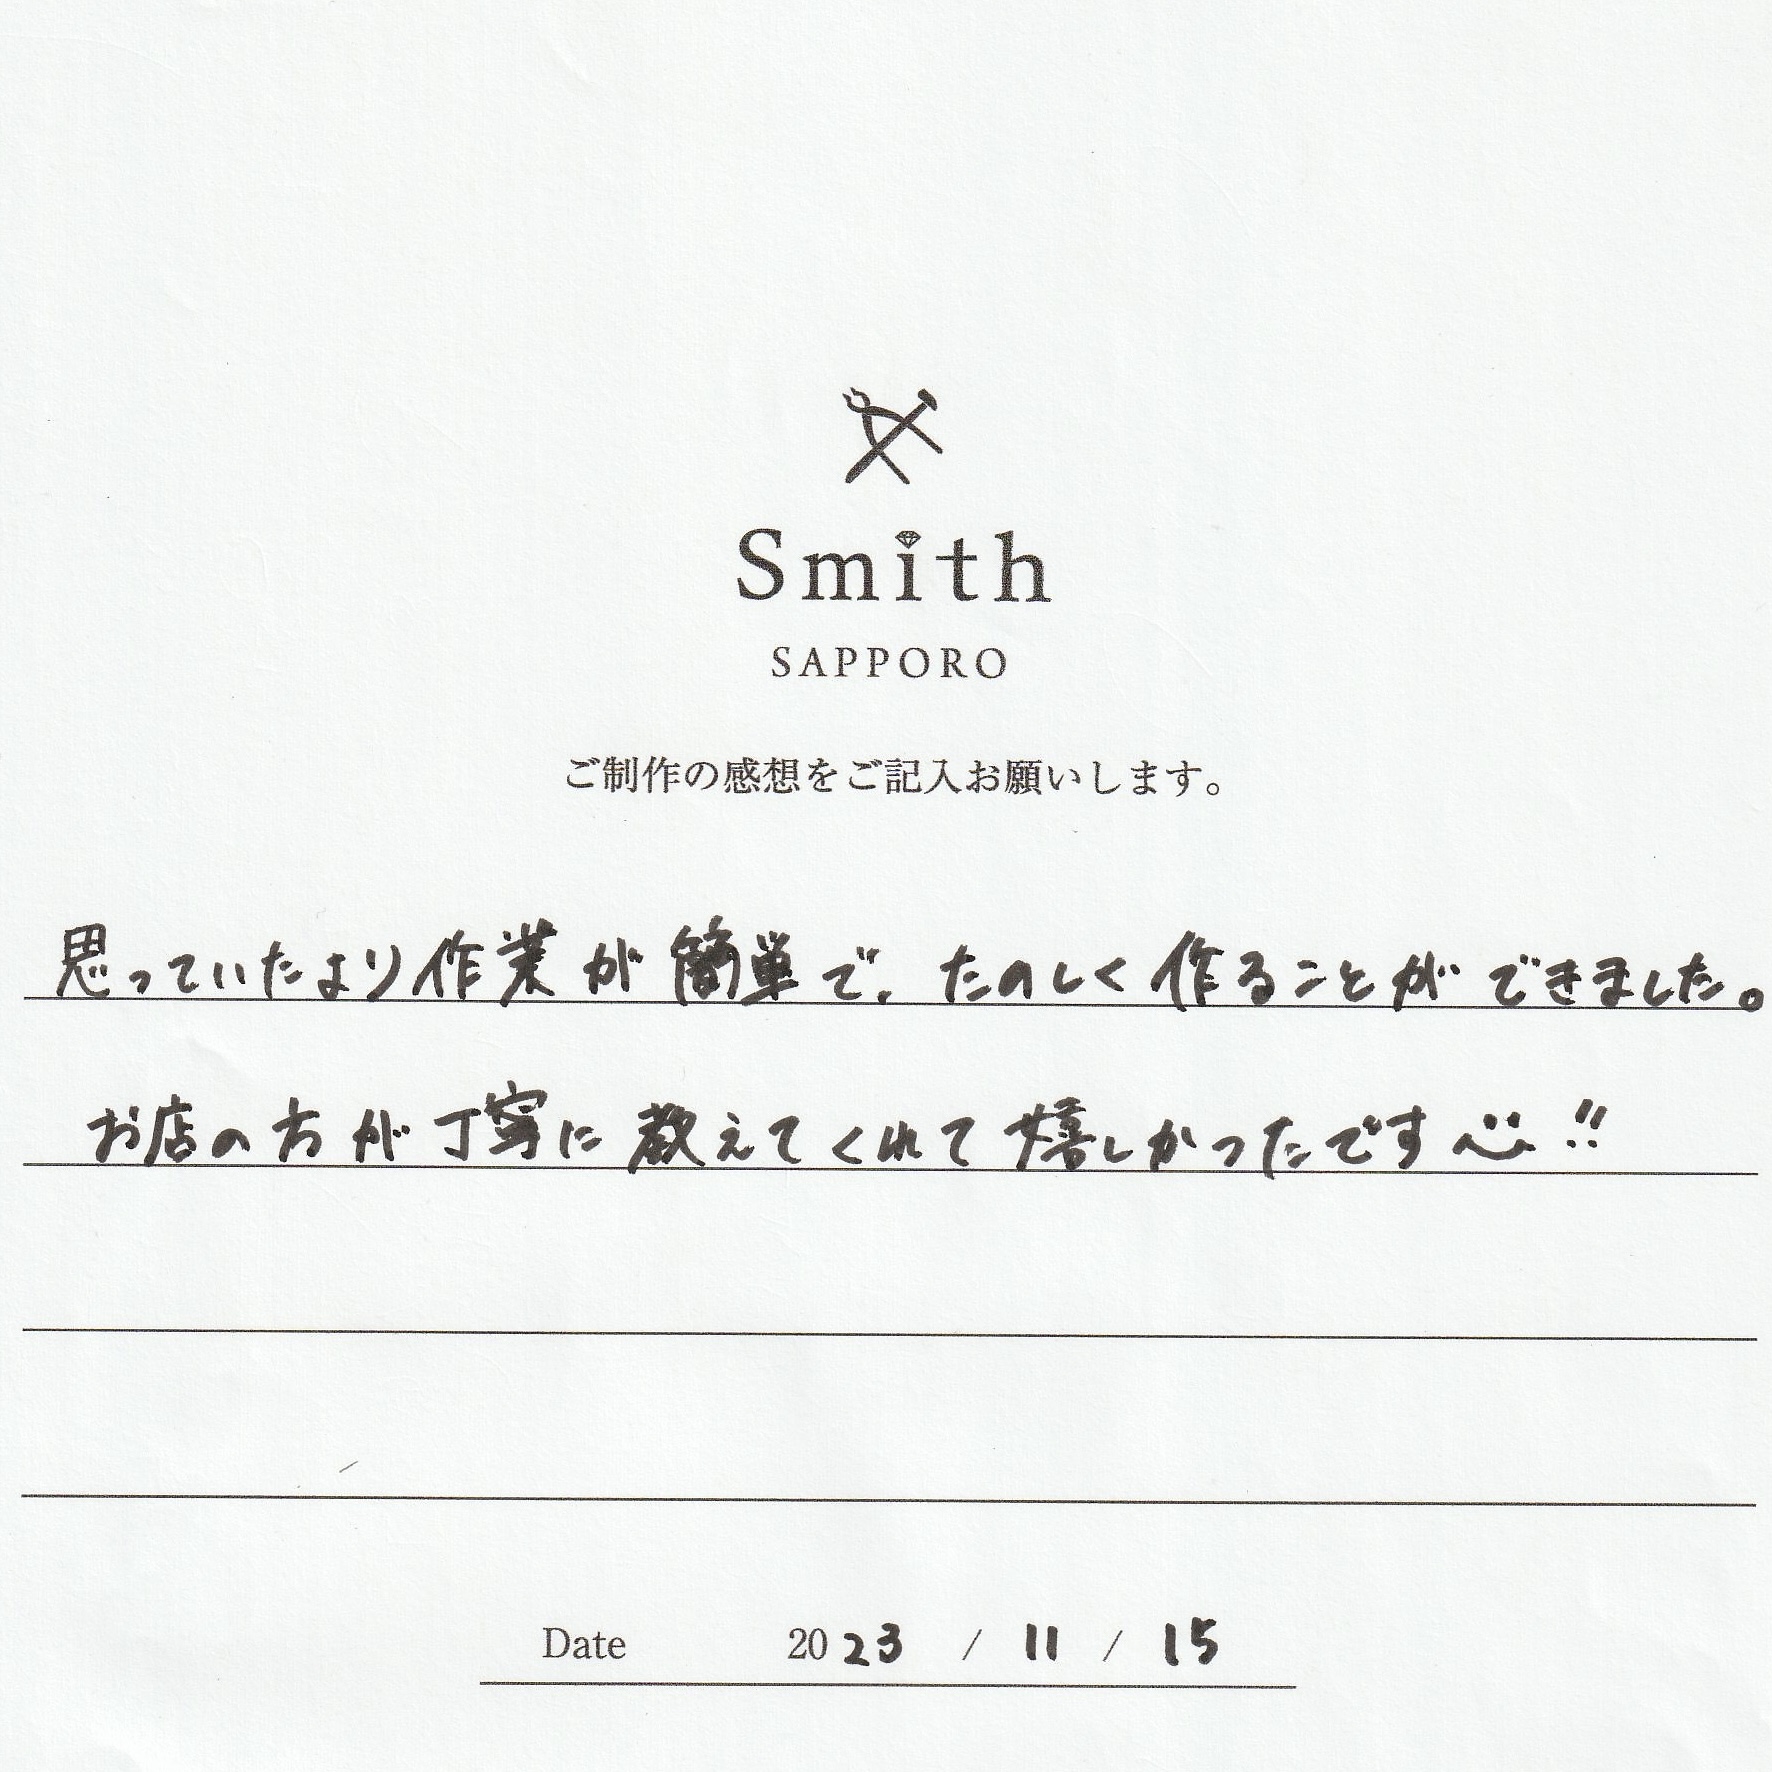 Smith
SAPPORO
ご制作の感想をご記入お願いします。
思っていたより作業が簡単で、たのしく作ることができました。
お店の方が丁寧に教えてくれて嬉しかったです!!
Date 2023 / 11 / 15